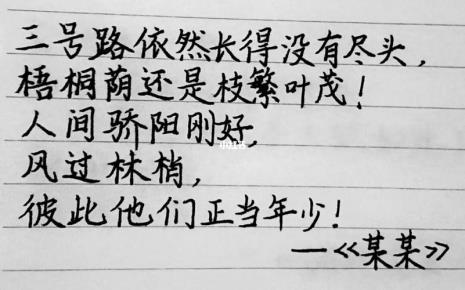 三号路依然长得没有尽头,
梧桐荫还是枝繁叶茂!
人间骄阳刚好,
风过林梢,
彼此他们正当年少!
—《某某》